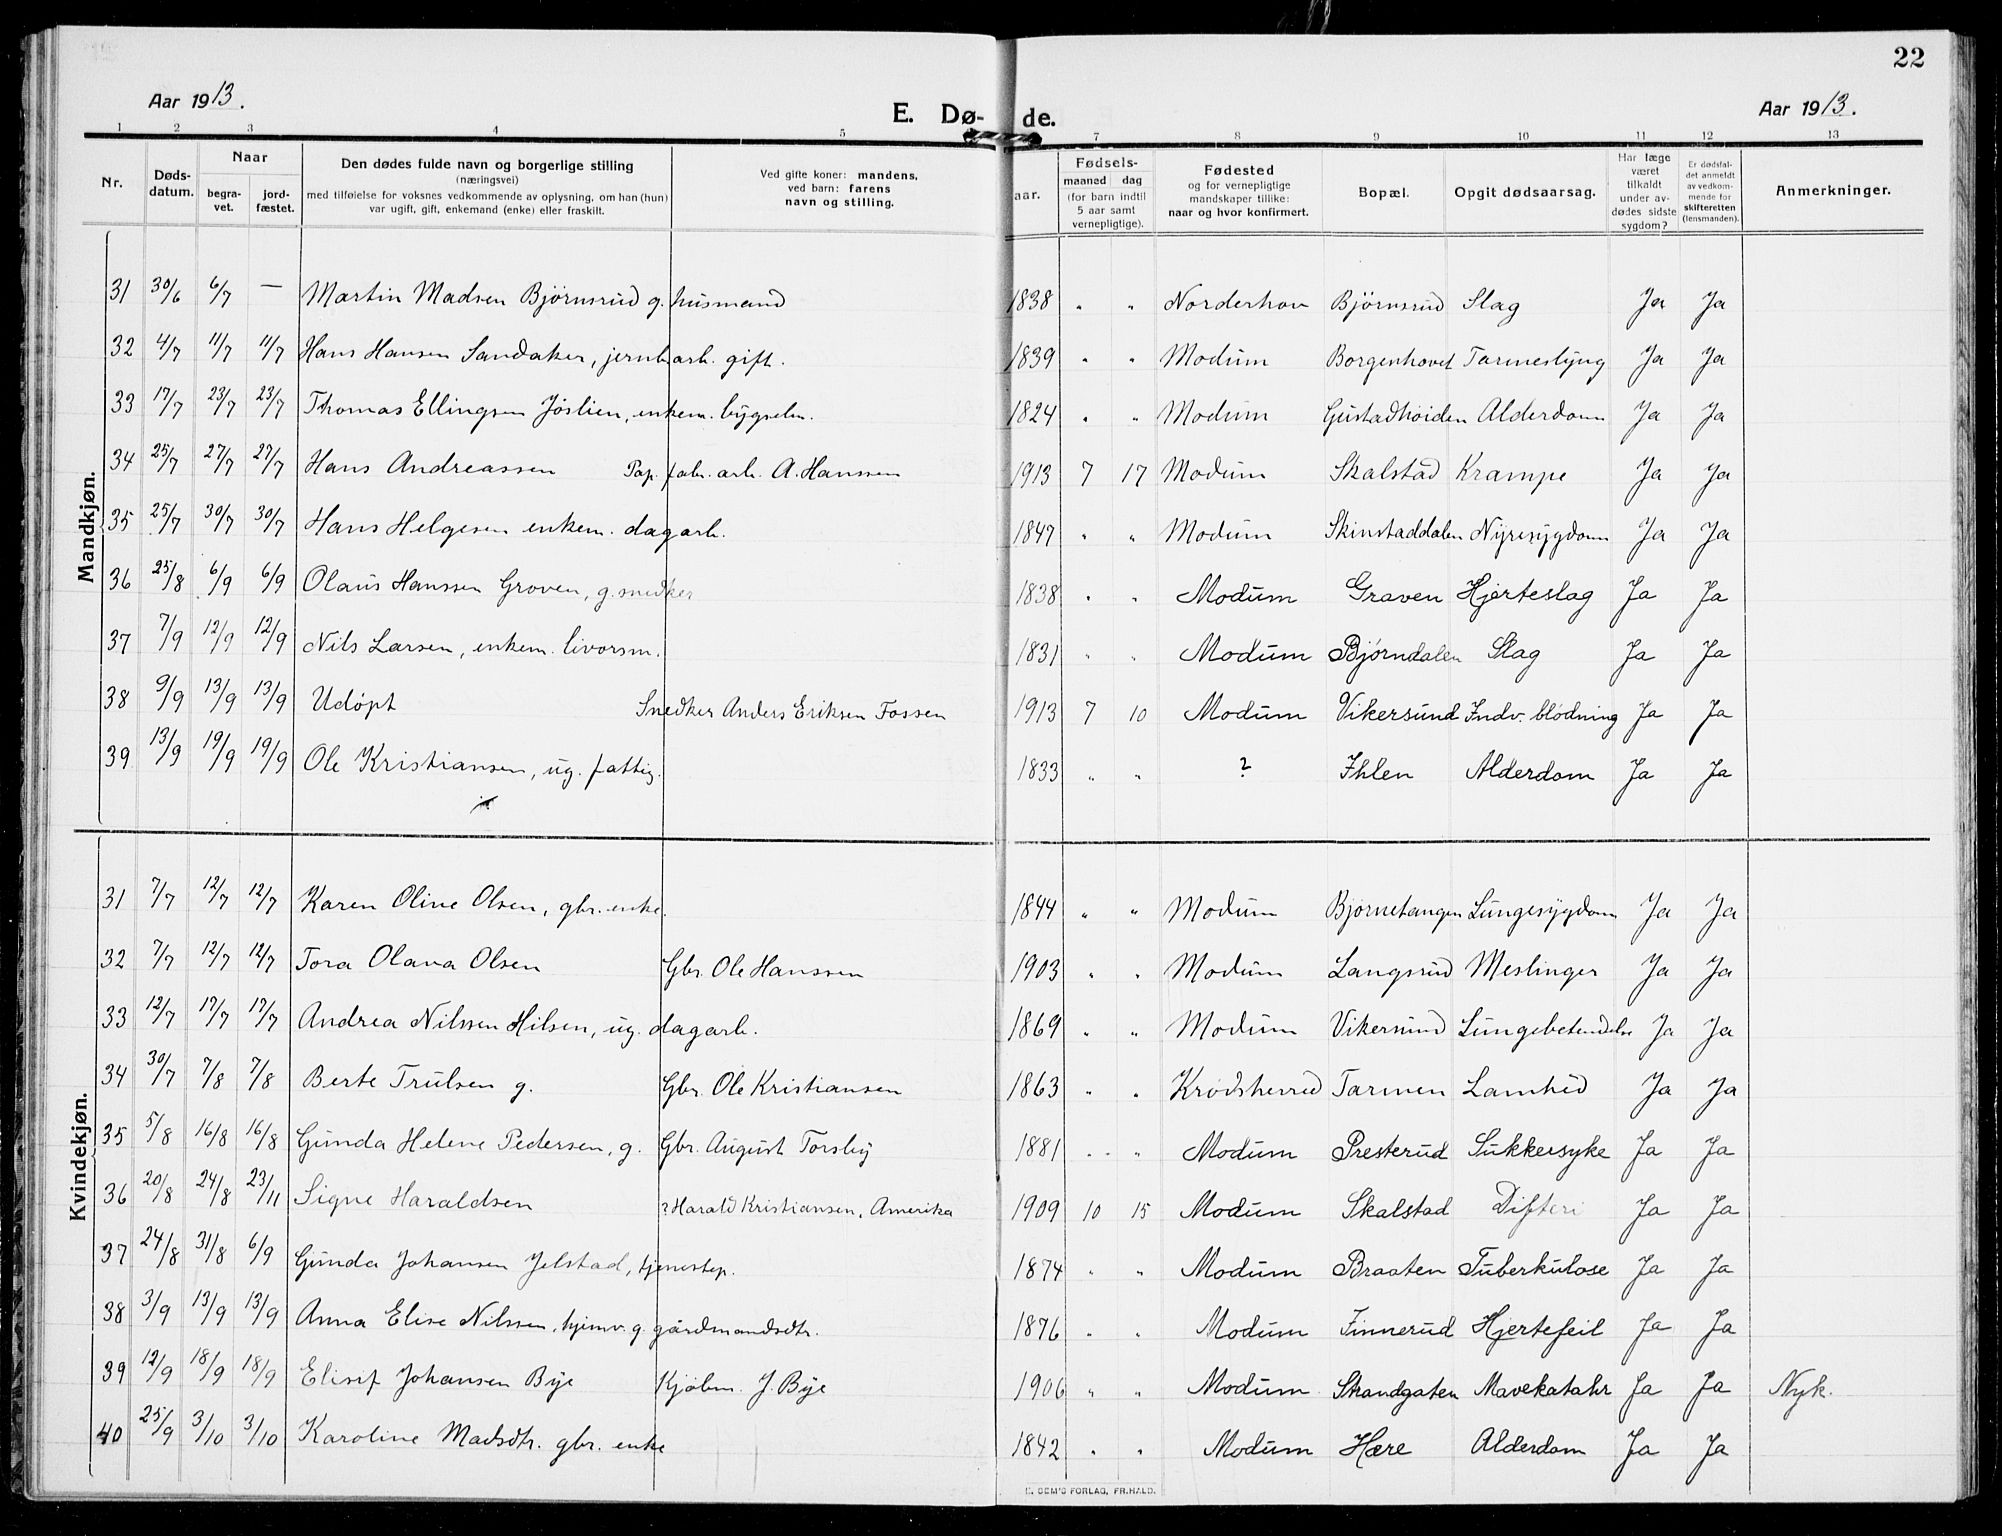 22
Aar 1913.
E. Dø-
de.
Aar 1913.
1 2 3 4 5 7 8 9 10 11 12 13
Nr.
Døds-
datum.
Naar
begra-
vet.
jord-
fæstet.
Den dødes fulde navn og borgerlige stilling
(næringsvei)
med tilføielse for voksnes vedkommende av oplysning, om han (hun)
var ugift, gift, enkemand (enke) eller fraskilt.
Ved gifte koner: mandens,
ved barn: farens
navn og stilling.
aar.
Fødsels-
maaned dag
(for barn indtil
5 aar samt
vernepligtige).
Fødested
og for vernepligtige
mandskaper tillike:
naar og hvor konfirmert.
Bopæl.
Opgit dødsaarsag.
Har læge
været
tilkaldt
under av-
dødes sidste
sygdom?
Er dødsfal-
det anmeldt
av vedkom-
mende for
skifteretten
(lensmanden).
Anmerkninger.
Mandkjøn.
31 30/6 6/7 — Martin Madsen Bjørnsrud g. husmand 1838 " " Norderhov Bjørnsrud Slag Ja Ja
32 4/7 11/7 11/7 Hans Hansen Sandaker, jernb.arb. gift. 1839 " " Modum Borgenhovet Tarmeslyng Ja Ja
33 17/7 23/7 23/7 Thomas Ellingsen Jøslien, enkem. bygselm. 1824 " " Modum Gustadhøiden Alderdom Ja Ja
34 25/7 27/7 27/7 Hans Andreassen Pap. fabr. arb. A. Hanssen 1913 7 17 Modum Skalstad Krampe Ja Ja
35 25/7 30/7 30/7 Hans Helgesen enkem. dagarb. 1847 " " Modum Skinstaddalen Nyresygdom Ja Ja
36 25/8 6/9 6/9 Olaus Hanssen Groven, g. snedker 1838 " " Modum Graven Hjerteslag Ja Ja
37 7/9 12/9 12/9 Nils Larsen, enkem. livorsm. 1831 " " Modum Bjørndalen Slag Ja Ja
38 9/9 13/9 13/9 Udøpt Snedker Anders Eriksen Fossen 1913 7 10 Modum Vikersund Indv. blødning Ja Ja
39 13/9 19/9 19/9 Ole Kristiansen, ug. fattig. 1833 " " ? Ihlen Alderdom Ja Ja
Kvindekjøn.
31 7/7 12/7 12/7 Karen Oline Olsen, gbr. enke. 1844 " " Modum Bjørnetangen Lungesygdom Ja Ja
32 7/7 12/7 12/7 Tora Olava Olsen Gbr. Ole Hanssen 1903 " " Modum Langsrud Meslinger Ja Ja
33 12/7 17/7 17/7 Andrea Nilssen Hilsen, ug. dagarb. 1869 " " Modum Vikersund Lungebetendelse Ja Ja
34 30/7 7/8 7/8 Berte Trulsen g. Gbr. Ole Kristiansen 1863 " " Krødsherred Tarmen Lamhed Ja Ja
35 5/8 16/8 16/8 Gunda Helene Pedersen, g. Gbr. August Torsby 1881 " " Modum Presterud Sukkersyke Ja Ja
36 20/8 24/8 23/11 Signe Haraldsen ? Harald Kristiansen, Amerika 1909 10 15 Modum Skalstad Difteri Ja Ja
37 24/8 31/8 6/9 Gunda Johansen Jelstad, tjenestep. 1874 " " Modum Braaten Tuberkulose Ja Ja
38 3/9 13/9 13/9 Anna Elise Nilssen, hjemv. g. gårdmandsdtr. 1876 " " Modum Finnerud Hjertefeil Ja Ja
39 12/9 18/9 18/9 Elisif Johansen Bye Kjøbm. J. Bye 1906 " " Modum Strandgaten Mavekatahr Ja Ja Nyk.
40 25/9 3/10 3/10 Karoline Madsdtr. gbr. enke 1842 " " Modum Hære Alderdom Ja Ja
FORLAG, FR.HALD.